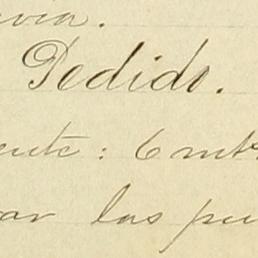 Pedido.
ente: 6 mts
ar las pu